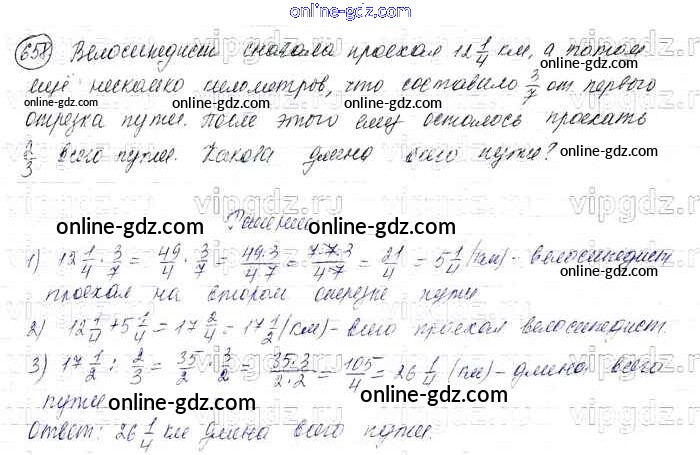 online-gdz.com
658) Велосипедист сначала проехал 12 1/4 км, а потом
ещё несколько километров, что составило 3/7 от первого
отрезка пути. После этого ему осталось проехать
2/3 всего пути. Какова длина всего пути?
Решение
1) 12 1/4 · 3/7 = 49/4 · 3/7 = 49·3/4·7 = 7·7·3/4·7 = 21/4 = 5 1/4 (км) - велосипедист
проехал на втором отрезке пути
2) 12 1/4 + 5 1/4 = 17 2/4 = 17 1/2 (км) - всего проехал велосипедист.
3) 17 1/2 : 2/3 = 35/2 · 3/2 = 35·3/2·2 = 105/4 = 26 1/4 (км) - длина всего
пути
Ответ: 26 1/4 км длина всего пути.
online-gdz.com
online-gdz.com
online-gdz.com
online-gdz.com
online-gdz.com
online-gdz.com
online-gdz.com
online-gdz.com
online-gdz.com
online-gdz.com
online-gdz.com
vipgdz.ru